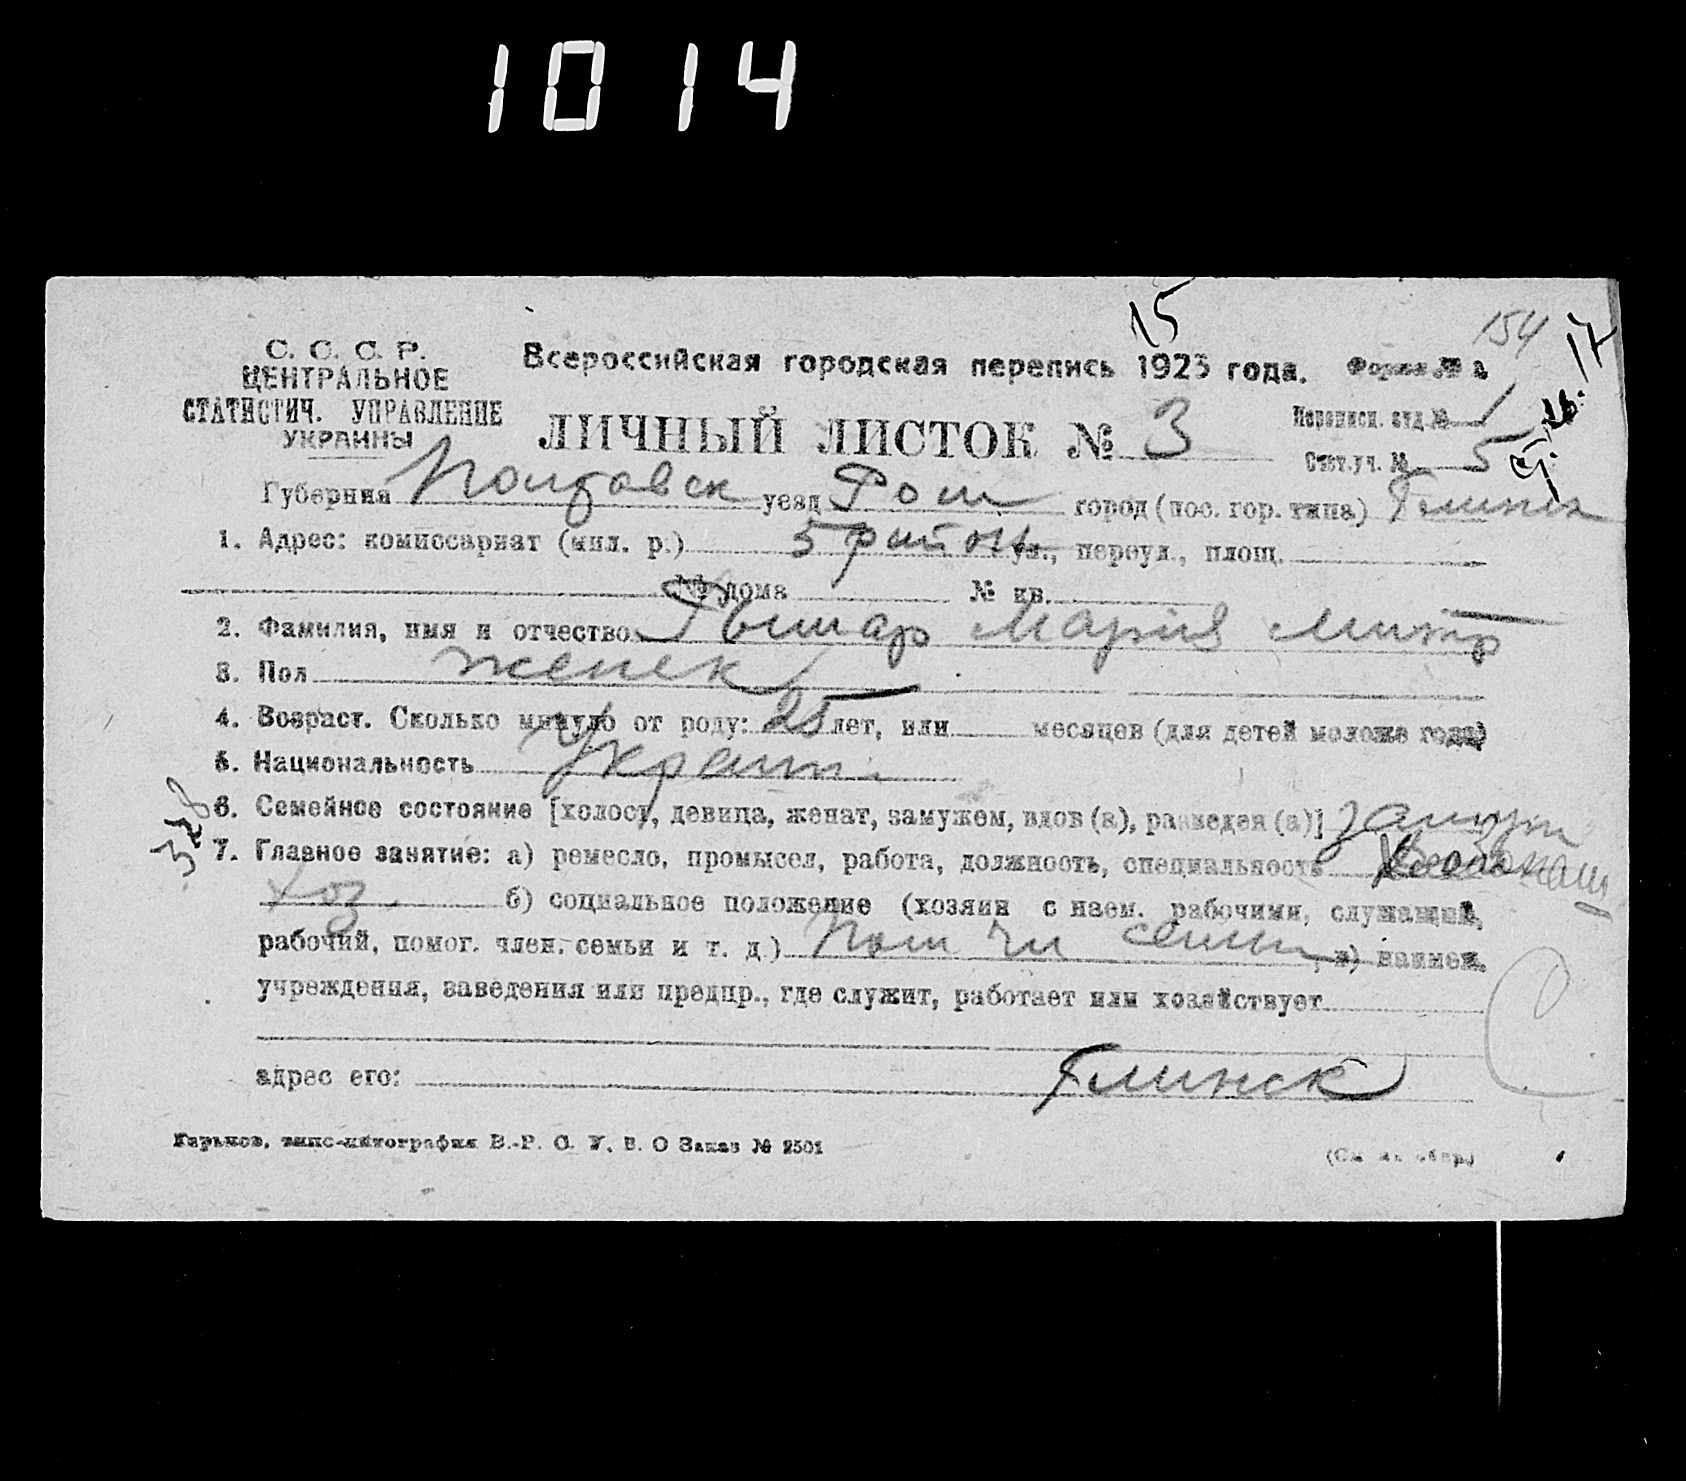 1014
15
154
17
С. С. С. Р.
ЦЕНТРАЛЬНОЕ
СТАТИСТИЧ. УПРАВЛЕНИЕ
УКРАИНЫ
Всероссийская городская перепись 1923 года. Форма № 2
ЛИЧНЫЙ ЛИСТОК № 3
Переписн. отд. № 1
Счет. уч. № 5
Губерния Полтавск уезд Ром город (пос. гор. типа) Глинск
1. Адрес: комиссариат (мил. р.) 5 район ул., переул., площ.
№ дома № кв.
2. Фамилия, имя и отчество Мария Митр
3. Пол женск
4. Возраст. Сколько минуло от роду: 25 лет, или месяцев (для детей моложе года)
5. Национальность Украин
6. Семейное состояние [холост, девица, женат, замужем, вдов (а), разведен (а)] замуж
328
7. Главное занятие: а) ремесло, промысел, работа, должность, специальность
хоз. б) социальное положение (хозяин с наем. рабочими, служащий,
рабочий, помог. член. семьи и т. д.) Пом чл семьи, в) наимен.
учреждения, заведения или предпр., где служит, работает или хозяйствует
адрес его: Глинск
Харьков, типо-литография В.-У. С. У. В. О Заказ № 2501
(См. на обор.)